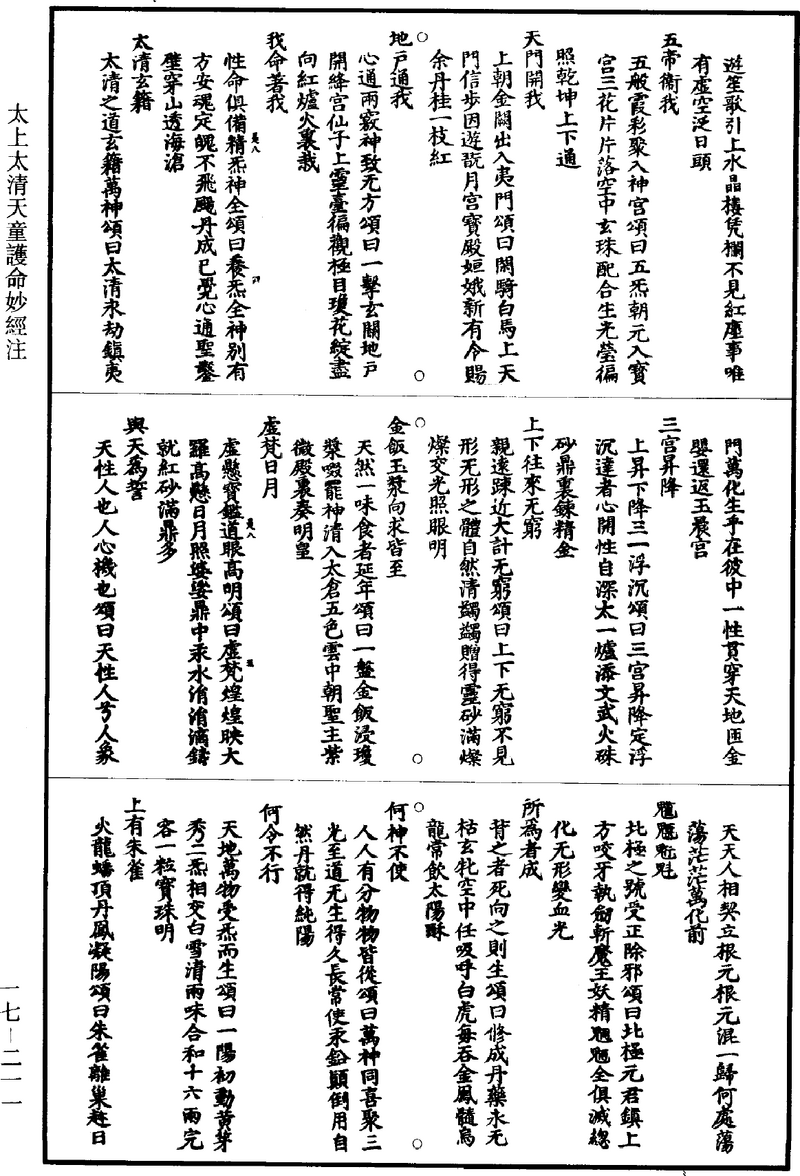 太上太清天童護命妙經注
一七—二一一
遊笙歌引上水晶樓凭欄不見紅塵事唯
有虛空泛日頭
五帝衛我
五般霞彩聚入神宮頌曰五炁朝元入寳
宮三花片片落空中玄珠配合生光瑩徧
照乾坤上下通
天門開我
上朝金闕出入夷門頌曰閑騎白馬上天
門信步因遊翫月宮寳殿姮娥新有令賜
余丹桂一枝紅
地戸通我
心通兩竅神致无方頌曰一擊玄關地戸
開絳宮仙子上靈臺徧觀極目瓊花綻盡
向紅爐火裏栽
我命著我
性命俱備精炁神全頌曰養炁全神別有
方安魂定魄不飛颺丹成已覺心通聖鑿
壁穿山透海滄
太清玄籍
太清之道玄籍萬神頌曰太清永劫鎮夷
門萬化生乎在彼中一性貫穿天地匝金
嬰還返玉晨宮
三宮昇降
上昇下降三一浮沉頌曰三宮昇降定浮
沉達者心開性自深太一爐添文武火硃
砂鼎裏鍊精金
上下往來无窮
親遠踈近大計无窮頌曰上下无窮不見
形无形之體自然清蠲蠲贈得靈砂滿燦
燦交光照眼明
金飯玉漿向求皆至
天然一味食者延年頌曰一盤金飯浸瓊
漿啜罷神清入太倉五色雲中朝聖主紫
微殿裏奏明皇
虛梵日月
虛懸寳鑑道眼高明頌曰虛梵煌煌映大
羅高懸日月照娑婆鼎中汞水涓涓滴鑄
就紅砂滿鼎多
與天為誓
天性人也人心機也頌曰天性人兮人象
天天人相契立根元根元混一歸何處蕩
蕩茫茫萬化前
北極之號受正除邪頌曰北極元君鎮上
方咬牙執劒斬魔王妖精魍魎全俱滅緫
化无形變血光
所為者成
背之者死向之則生頌曰修成丹藥永无
枯玄牝空中任吸呼白虎每吞金鳳髓烏
龍常飲太陽酥
何神不使
人人有分物物皆從頌曰萬神同喜聚三
光至道无生得久長常使汞鉛顛倒用自
然丹就得純陽
何令不行
天地萬物受炁而生頌曰一陽初動黄芽
秀二炁相交白雪清兩味合和十六兩完
客一粒寳珠明
上有朱雀
火龍蟠頂丹鳳凝陽頌曰朱雀離巢趂日